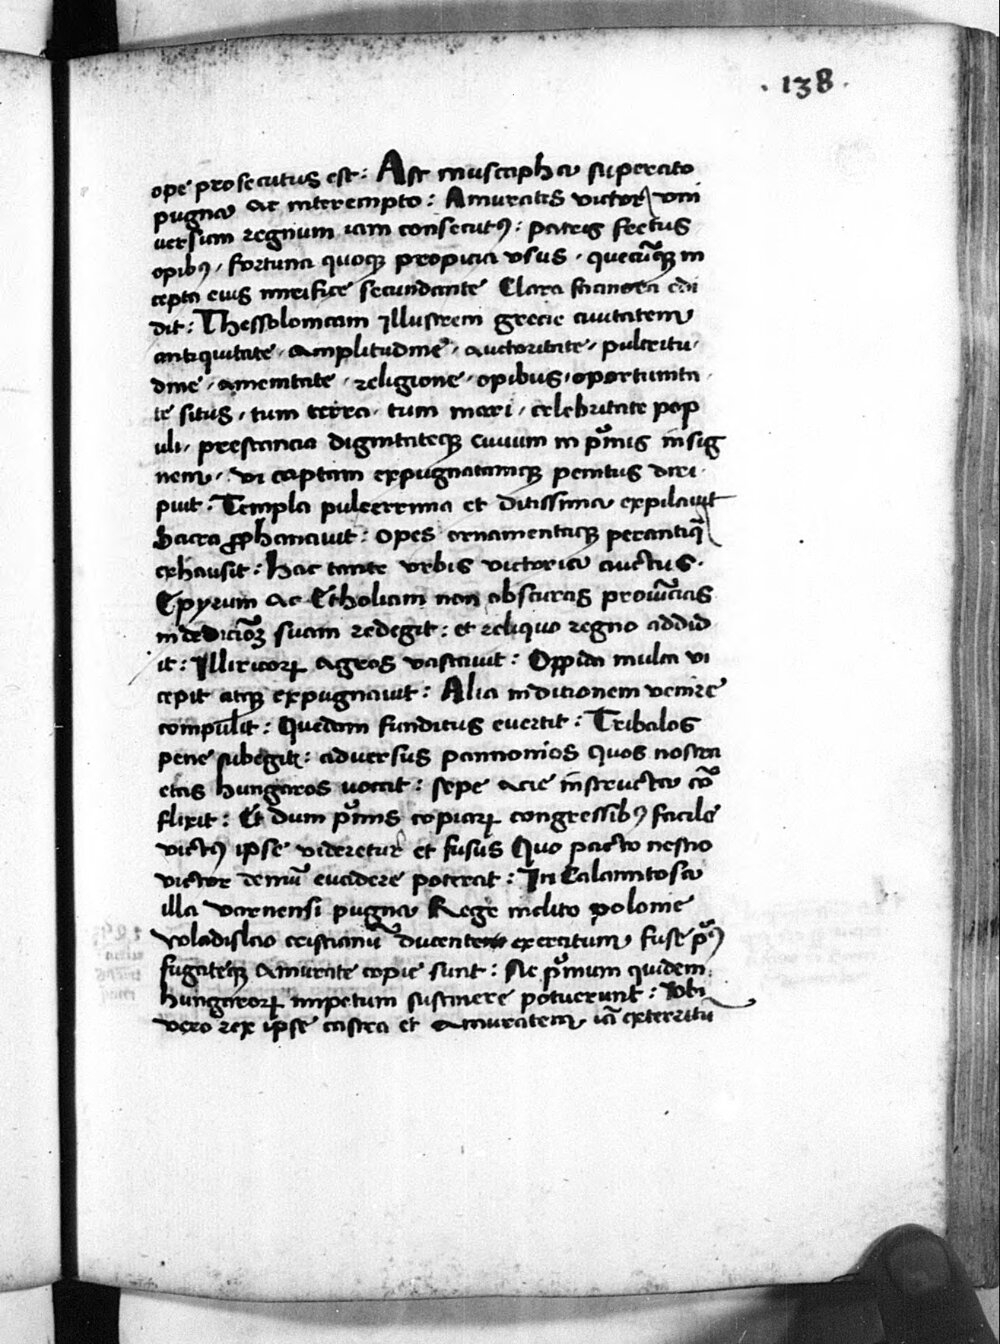 · 138 ·
ope prosecutus est : Ast mustapha superato
pugna ac interempto : Amurates victor vni
uersum regnum iam consecutꝰ : patris fretus
opibꝰ , fortuna quoqꝫ propicia vsus , quecūqꝫ in
cepta eius mirifice secundante Clara facinora edi
dit : Thessolonicam Jllustrem grecie ciuitatem
antiquitate , amplitudine , auctoritate , pulcritu
dine , amenitate , religione , opibus , oportunita
te situs , tum terra , tum mari , celebritate pop
uli , prestancia dignitateqꝫ ciuium in pͥmis insig
nem , vi captam expugnatamqꝫ penitus diri
puit . Templa pulcerrima et ditissima expilauit
Sacra ꝓphanauit : opes ornamentaqꝫ perantiq̄
exhausit : Hac tante vrbis victoria auctus .
Epyrum ac Etholiam non obscuras prouīcias
in dedicionē suam redegit : et reliquo regno addid
it : Jlliricoꝝ agros vastauit : Oppida multa vi
cepit atqꝫ expugnauit : Alia in ditionem venire
compulit : Quedam funditus euertit : Tribalos
pene subegit : aduersus pannonios quos nostra
etas hungaros vocat : sepe acie instructa cō
flixit : Et dum pͥmis copiaꝝ congressibꝰ facile
victꝰ ipse videretur et fusus Quo pacto nescio
victor demū euadere poterat : Jn Calamitosa
illa varnensi pugna Rege inclito polonie
voladislao cristianū ducente exercitum fuse pͥꝰ
fugateqꝫ Amurate copie sunt : Nec pͥmum quidem
hungaroꝝ impetum sustinere potuerunt : Vbi
vero rex ipse castra et Amuratem iā exterritū